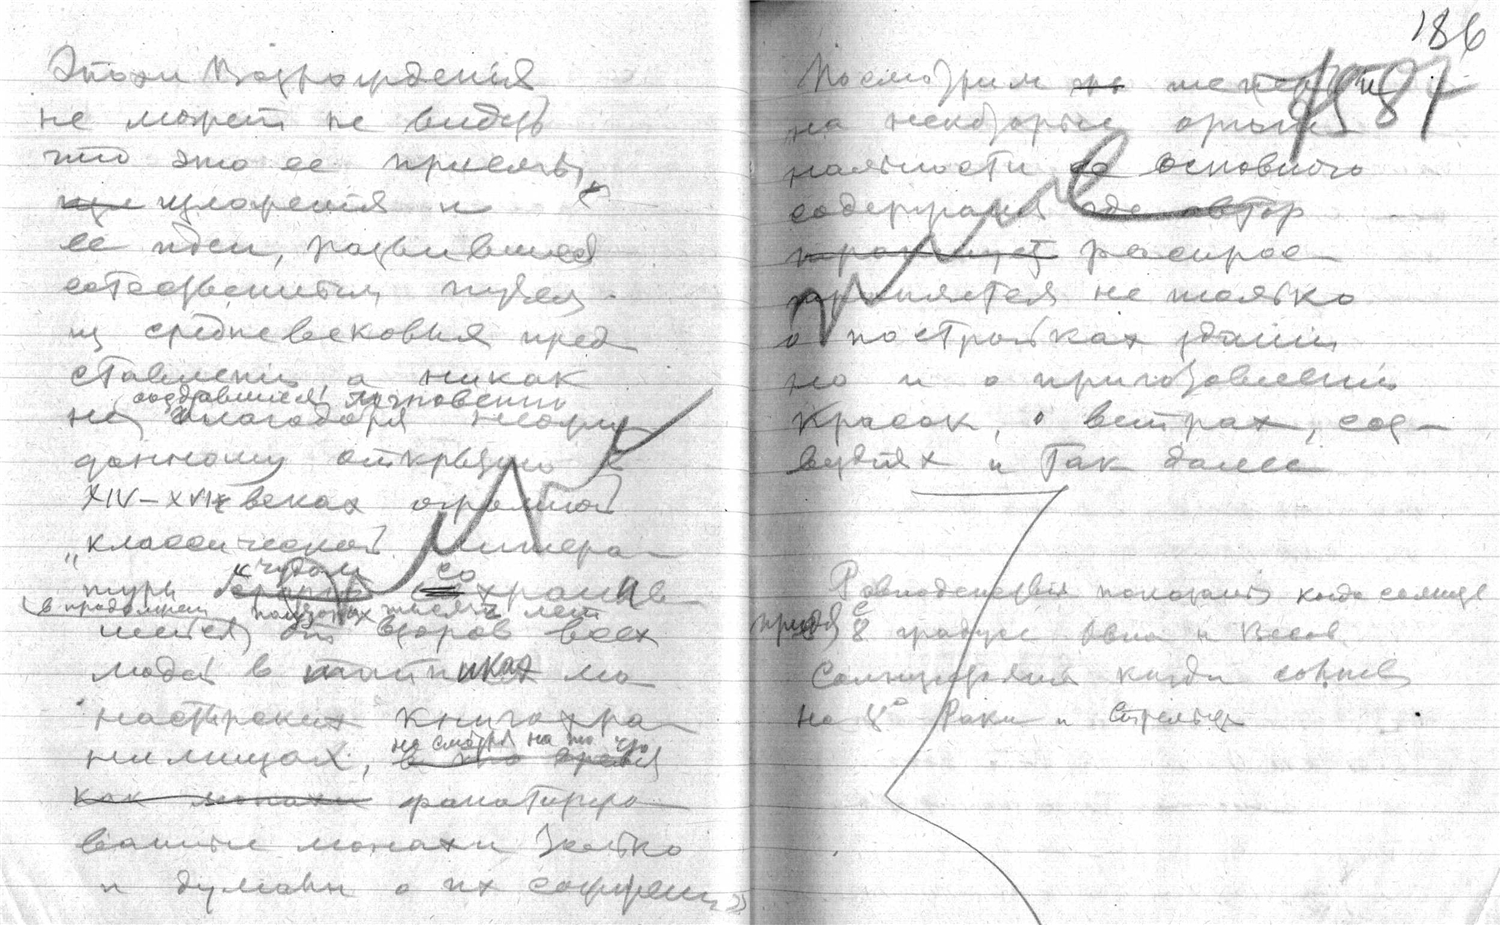 Эпохи Возрождения
не может не видеть
что это ее приемы
изложения и
ее идеи, развившиеся
естественным путем
из средневековых пред
ставлений, а никак
создавшиеся мгновенно
не благодаря неожи
данному открытию в
XIV-XVI веках огромной
„классической литера
туры "чудом со хранив
в продолжении полуторых тысяч лет
шейся, от взоров всех
людей в тайниках мо
настырских книгохра
нилищах, не смотря на то что
как монахи фанатизиро
ванные монахи только
и думали о их сожжении»
186
1587
Посмотрим теперь и
на некоторые ориги
нальности основного
содержания где автор
распрос
траняется не только
о постройках зданий
но и о приготовлении
красок, о ветрах, соз-
вездиях и так далее
Равноденствия показаны когда солнце
придет в 8 градус Овна и Весов
Солнцестояния когда солнце
на 8° Рака и Стрельца